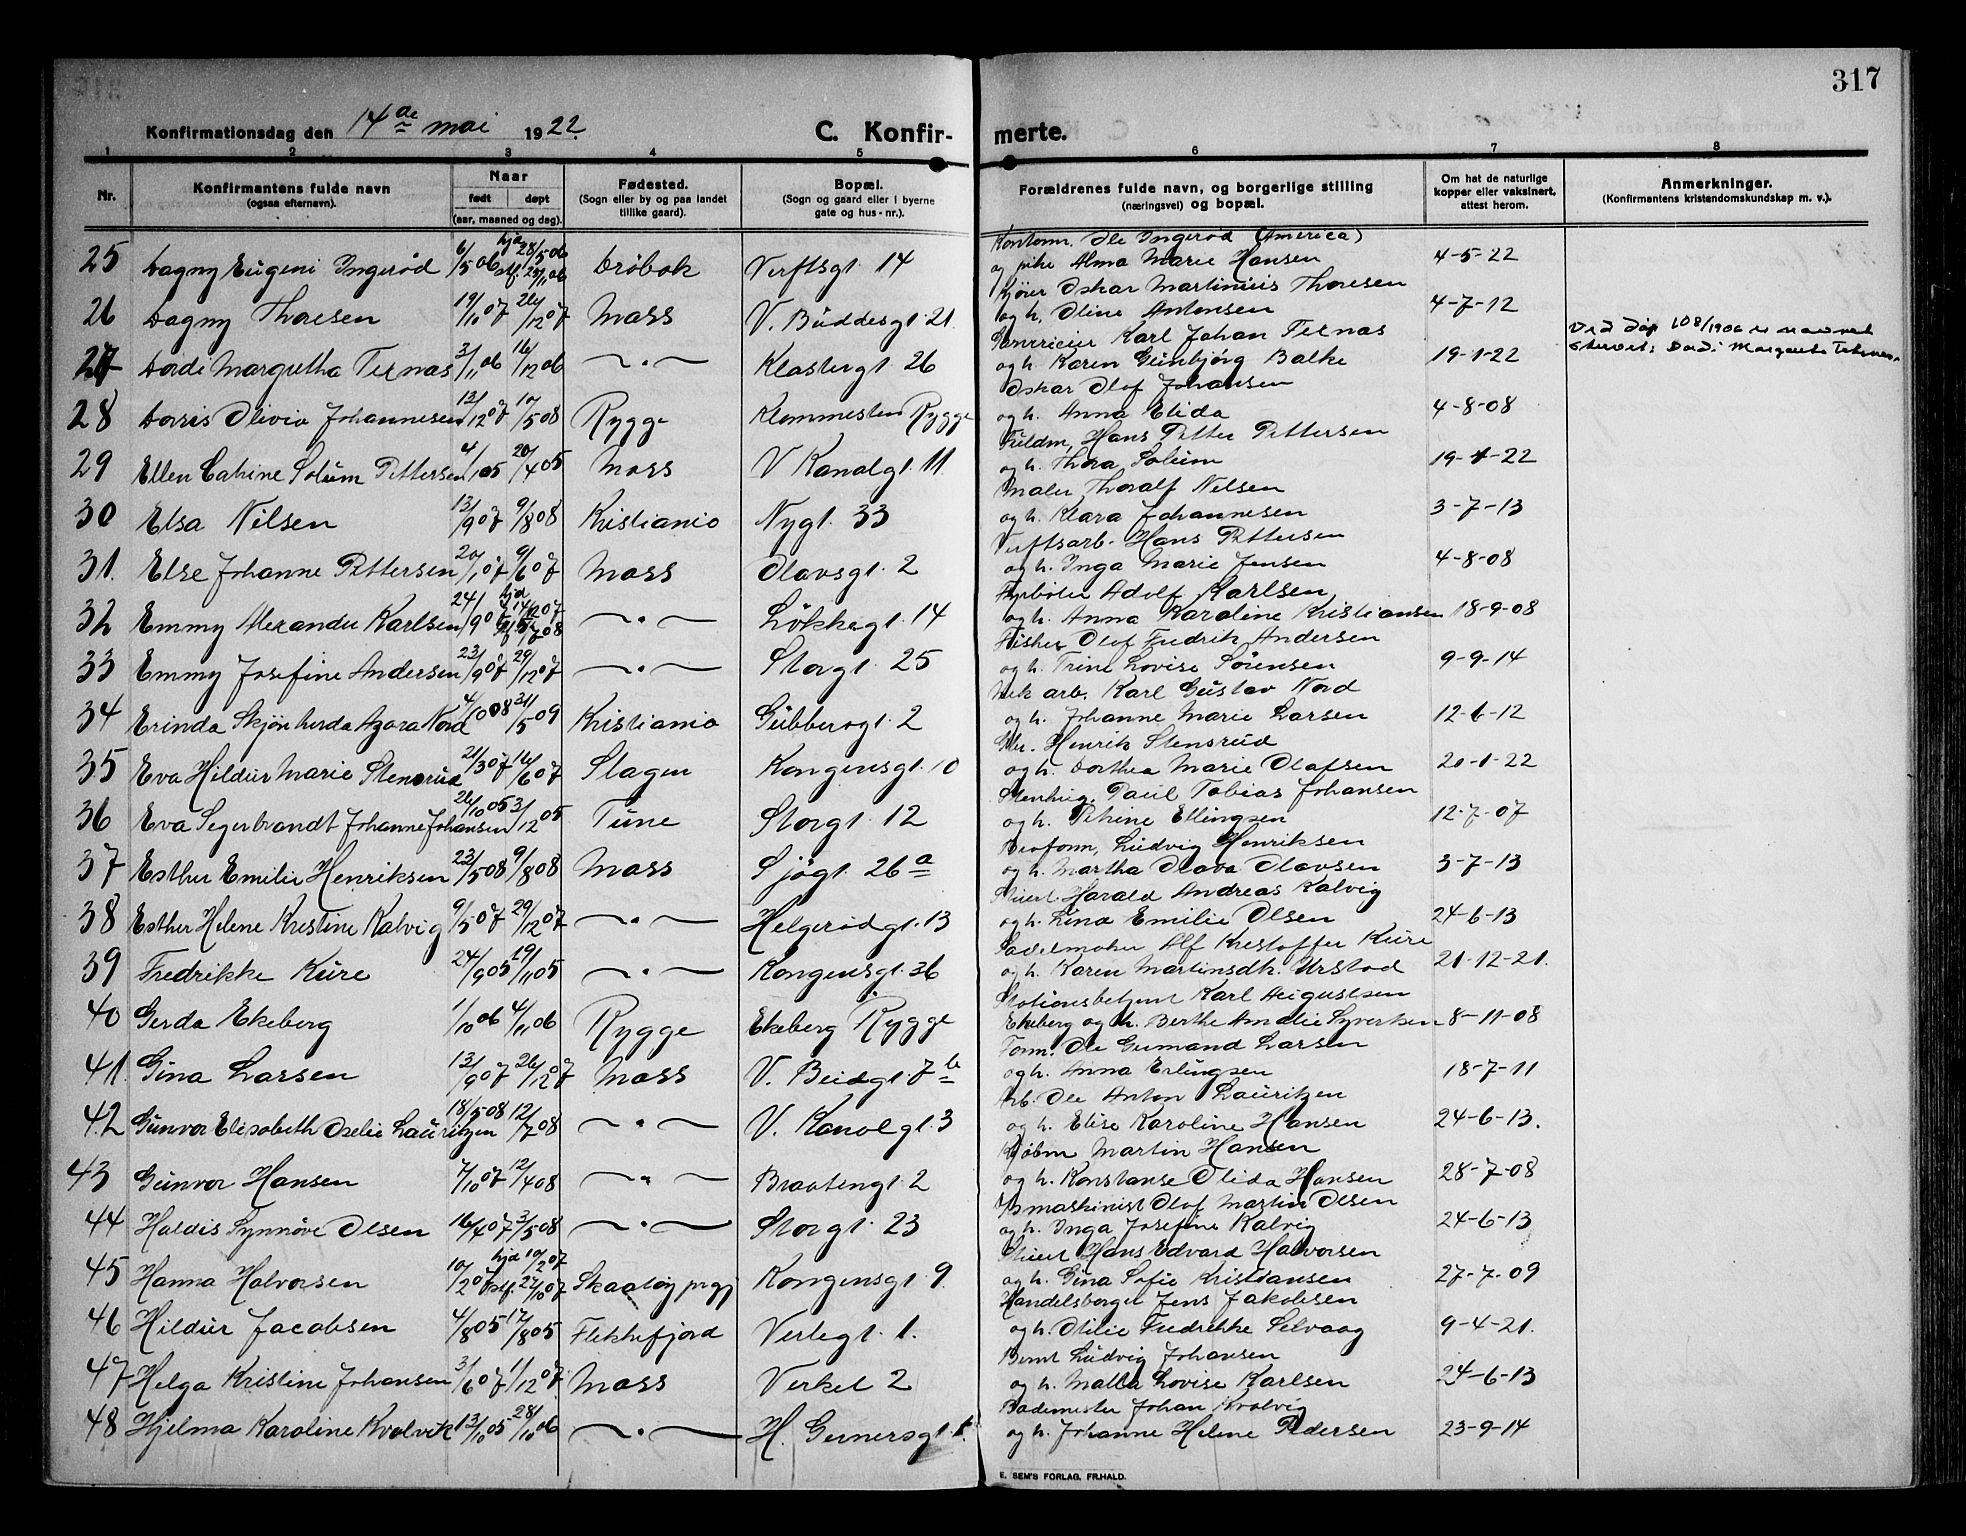 317
Konfirmationsdag den 14de mai 1922. C. Konfirmerte.
1 2 3 4 5 6 7 8
Nr. Konfirmantens fulde navn (ogsaa efternavn). Naar født døpt (aar, maaned og dag). Fødested. (Sogn eller by og paa landet tillike gaard). Bopæl. (Sogn og gaard eller i byerne gate og hus-nr.). Forældrenes fulde navn, og borgerlige stilling (næringsvei) og bopæl. Om hat de naturlige kopper eller vaksinert, attest herom. Anmerkninger. (Konfirmantens kristendomskundskap m. v.).
25 Dagny Eugeni Ingerød 6/5 06 hjd 28/5 06 stf. 25/11 06 Drøbak Verftsgt. 14 Kontorm. Ole Ingerød (America) og pike Alma Marie Hansen 4-5-22
26 Dagny Thoresen 19/10 07 26/12 07 Moss V. Buddesgt. 21. Kjører Oskar Martinius Thoresen og h. Oline Antonsen 4-7-12
27 Dordi Margretha Ternæs 3/11 06 16/12 06 —"— Klostergt. 26 Karl Johan Ternæs og h. Karen Gunbjørg Balke 19-1-22 Ved dåp 108/1906 er navnet skrevet: Dordi Margrete
28 Dorris Olivia Johannesen 13/12 07 17/5 08 Rygge Klommesten Rygge Oskar Olof Johansen og h. Anna Elida 4-8-08
29 Ellen Catrine Solum Pettersen 4/1 05 20/4 05 Moss V Kanalgt. 11 Hans Petter Pettersen og h. Thora Solum 19-1-22
30 Elsa Nilsen 13/9 07 9/8 08 Kristiania Nygt. 33 Maler Thoralf Nilsen og h. Klara Johannesen 3-7-13
31. Else Johanne Pettersen 20/1 07 9/6 07 Moss Olavsgt. 2 Verftsarb. Hans Pettersen og h. Inga Marie Jensen 4-8-08
32 Emmy Merandu Karlsen 24/9 07 hjd —"— Løkkegt. 14 Fyrbøter Adolf Karlsen og h. Anna Karoline Kristiansen 18-9-08
33 Emmy Josefine Andersen 23/9 07 29/12 07 —"— Storgt. 25 Fisker Olof Fredrik Andersen og h. Trine Lovise Sørensen 9-9-14
34 Erinda Skjøn Nord 31/5 09 Kristiania Gubberogt. 2 arb. Karl Gustav Nord og h. Johanne Marie Larsen 12-6-12
35 Eva Hildur Marie Stensrud 21/3 07 16/6 07 Slagen Kongensgt. 10 Henrik Stensrud og h. Dorthea Marie Olafsen 20-1-22
36 Eva Segerbrandt Johanne Johansen 26/10 05 3/12 05 Tune Storgt. 12 Stenhug. Paul Tobias Johansen og h. Petrine Ellingsen 12-7-07
37 Esther Emilie Henriksen 23/5 08 9/8 08 Moss Sjøgt. 26a Ludvig Henriksen og h. Martha Olava Olavsen 3-7-13
38 Esther Helene Kristine Kalvig 9/5 07 29/12 07 —"— Helgerødgt. 13 Stuert Harald Andreas Kalvig og h. Lina Emilie Olsen 24-6-13
39 Fredrikke Kure 24/9 05 19/11 05 —"— Kongensgt. 36 Sadelmaker Alf Kristoffer Kure og h. Karen Martinsdtr. Urstad 21-12-21.
40 Gerda Ekeberg 1/10 06 4/11 06 Rygge Ekeberg Rygge Stationsbetjent Karl Augustsen Ekeberg og h. Berthe Amalie Syvertsen 8-11-08
41. Gina Larsen 13/9 07 26/12 07 Moss V. Bredgt. 7b Form. Ole Gumand Larsen og h. Anna Erlingsen 18-7-11
42 Gunvor Elisabeth Oselie Lauritzen 18/5 08 12/7 08 —"— V. Kanalgt. 3 Arb. Ole Anton Lauritzen og h. Elise Karoline Hansen 24-6-13.
43 Gunvor Hansen 7/10 07 12/4 08 —"— Braatengt. 2 Kjøbm Martin Hansen og h. Konstanse Olida Hansen 28-7-08
44 Haldis Synnøve Olsen 16/4 07 3/5 08 —"— Storgt. 23 maskinist Olof Martin Olsen og h. Inga Josefine Kalvig 24-6-13
45 Hanna Halvorsen 10/2 07 hjd 10/2 07 stf. 27/10 07 Skaatøy prgj Kongensgt. 9 Stuert Hans Edvard Halvorsen og h. Gina Sofie Kristiansen 27-7-09
46 Hildur Jacobsen 4/8 05 17/8 05 Flekkefjord Verlegt. 1. Handelsborger Jens Jakobsen og h. Otilie Fredrikke Selvaag 9-4-21.
47 Helga Kristine Johansen 3/6 07 1/12 07 Moss Verket 2 Bernt Ludvig Johansen og h. Malla Lovise Karlsen 24-6-13
48 Hjelma Karoline Kvalvik 13/10 05 28/10 06 —"— H. Gernersgt. 1. Bademester Johan Kvalvig og h. Johanne Helene Pedersen 23-9-14
E. SEM'S FORLAG, FR.HALD.